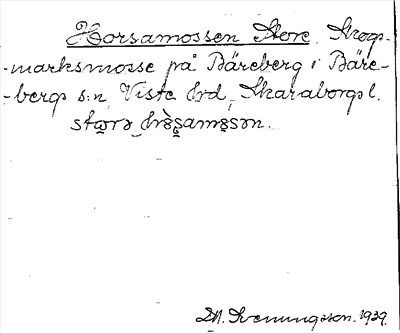 Horsamossen Store. Skogs-
-marksmosse på Bäreberg i Bäre-
-bergs s:n, Viste hrd, Skaraborgs l.
M. Svenungsson. 1939.